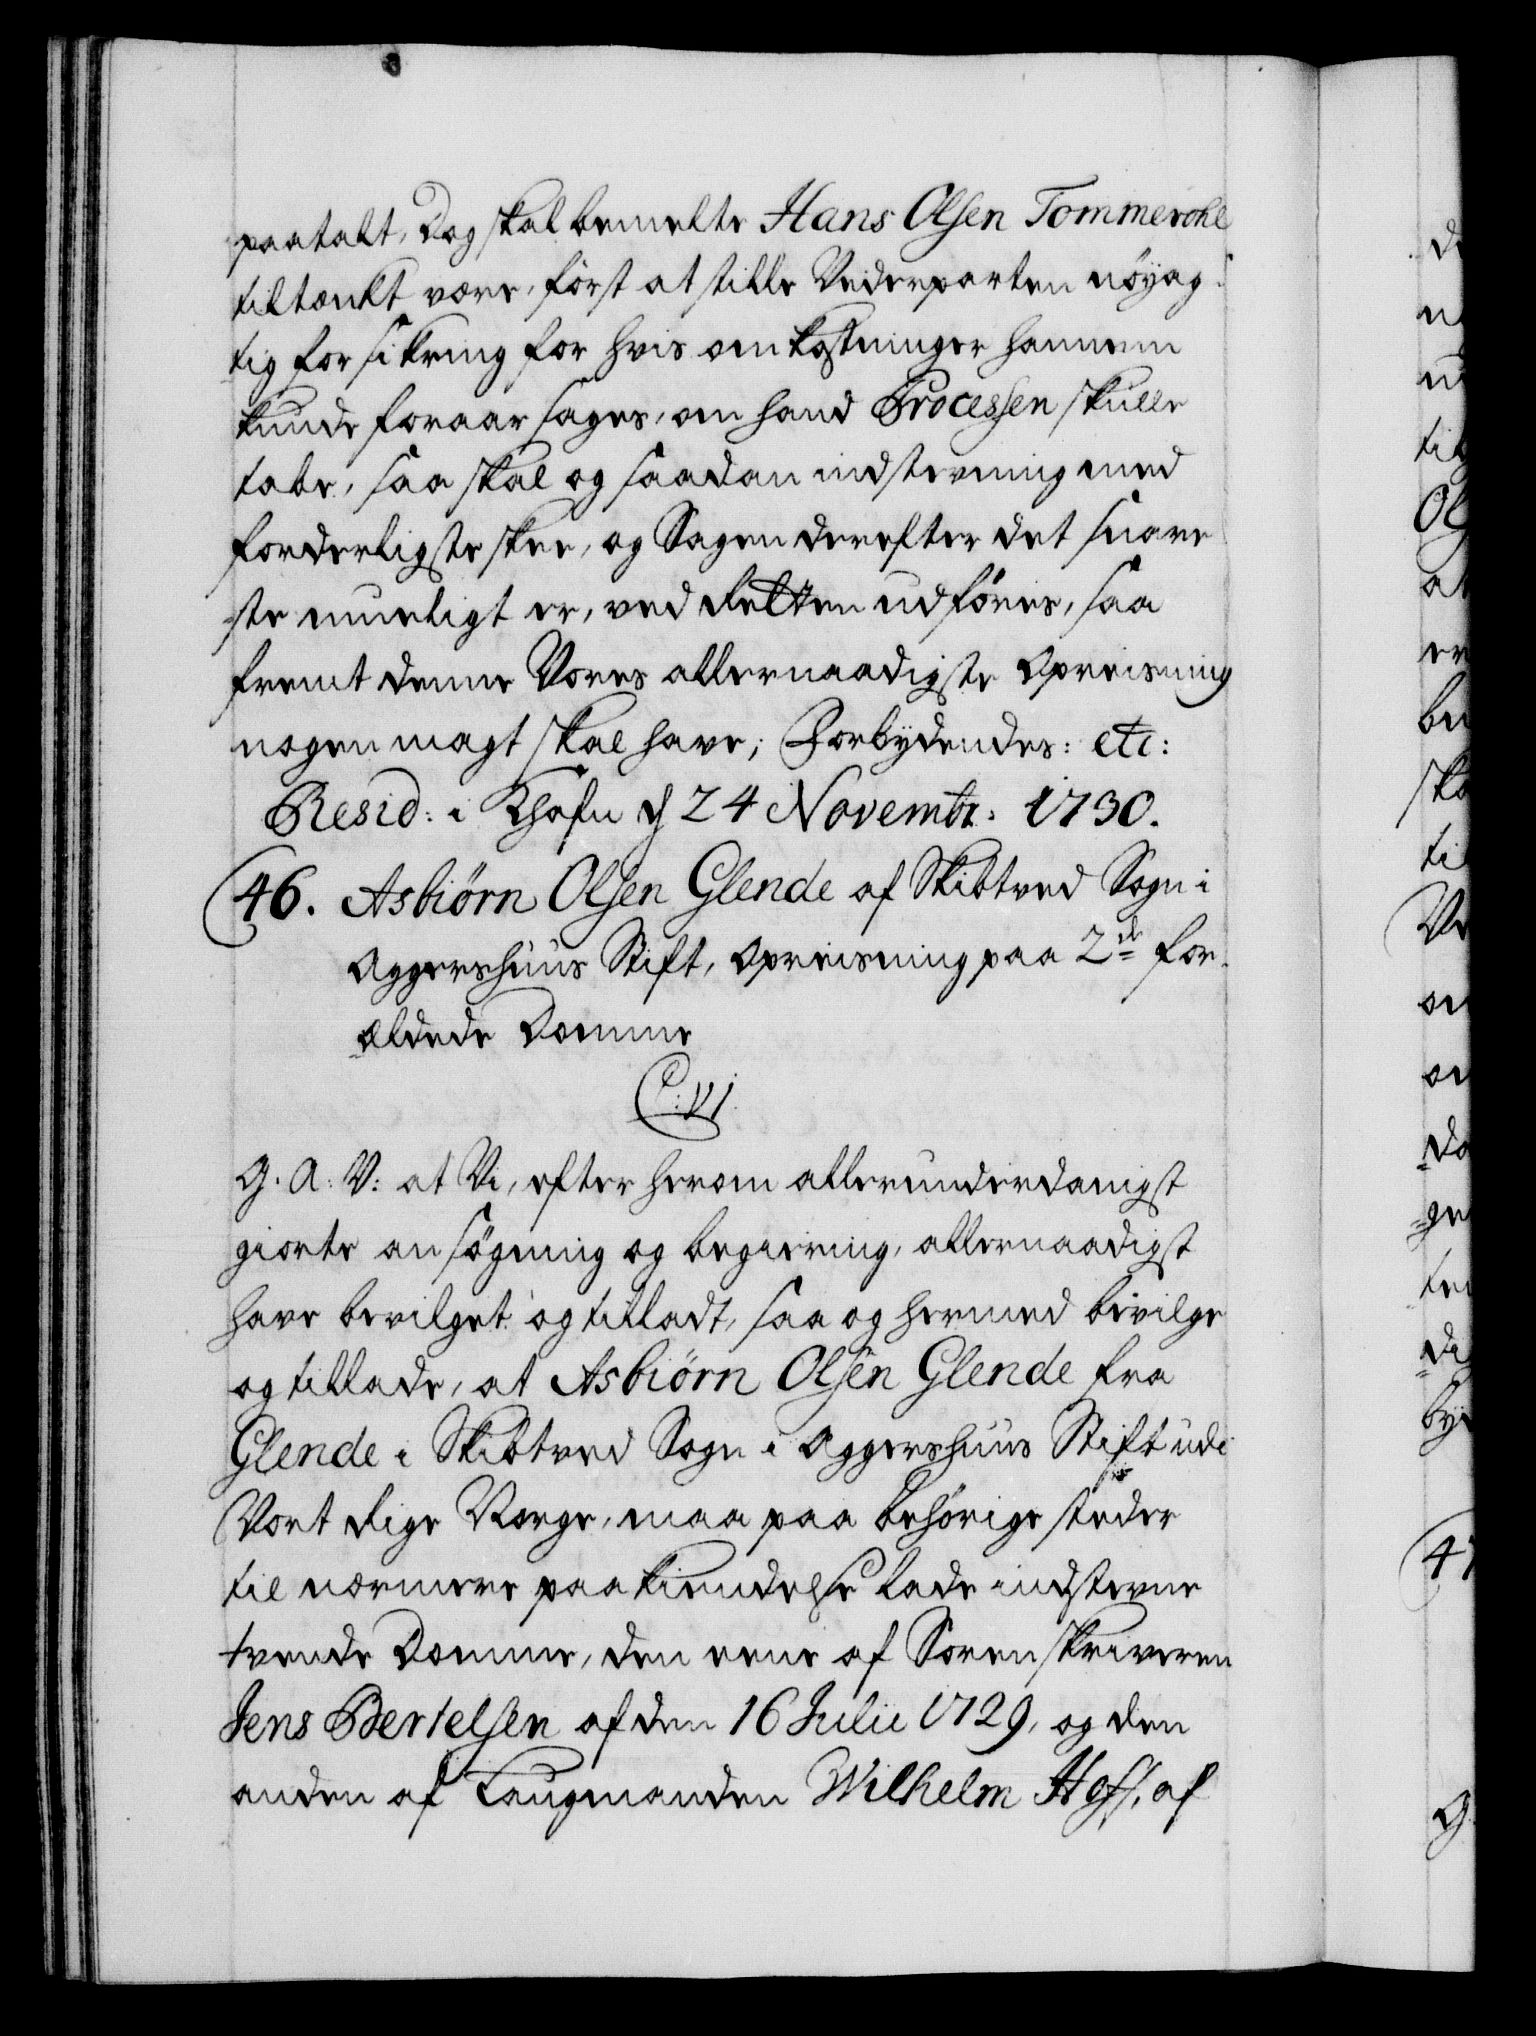 paatalt, Dog skal bemelte Hans Olsen Tommerohl
tiltænkt være, først at stille Vederparten nöyag-
tig forsikring for hvis omkostninger hannem
kunde foraarsages, om hand Processen skulle
tabe, saa skal og saadan indstevning med
forderligste skee, og Sagen derefter det snare
ste mueligt er, ved Retten udföres, saa
fremt denne Vores allernaadigste Opreisning
nogen magt skal have; Forbydendes: etc:
Resid: i Khafn d 24 Novembr: 1730.
46. Asbiörn Olsen Glende af Skibtved Sogn i
Aggershuus Stift, Opreisning paa 2de for-
ældede Domme
C: VI.
G. A. V: at Vi, efter herom allerunderdanigst
giorte ansögning og begiering, allernaadigst
have bevilget og tilladt, saa og hermed bevilge
og tillade, at Asbiörn Olsen Glende fra
Glende i Skibtved Sogn i Aggershuus Stift udi
Vort Rige Norge, maa paa behörige steder
til nærmere paakiendelse lade indstevne
tvende Domme, den eene af Sorenskriveren
Jens Bertelsen af den 16 Julii 1729, og den
anden af Laugmanden Wilhelm Hoff, af